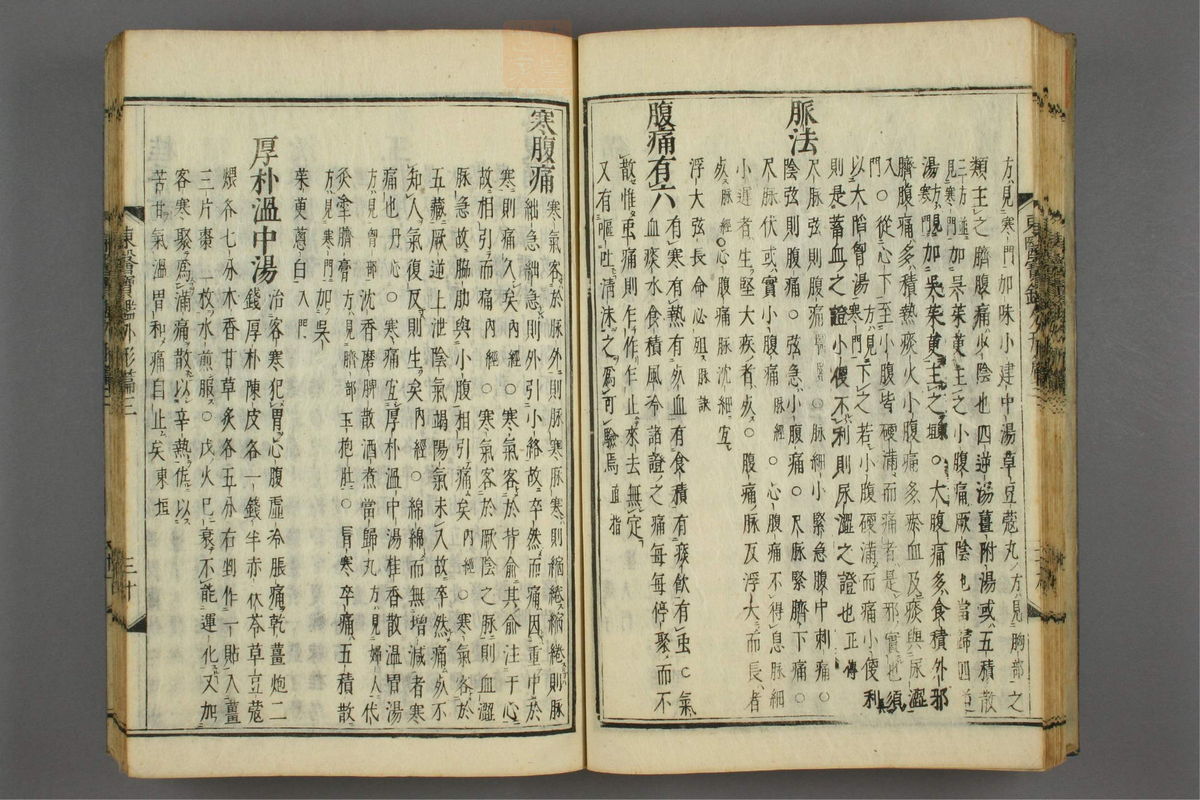 方見寒門加味小建中湯草豆蔲丸方見胸部之
類主之臍腹痛少陰也四逆湯薑附湯或五積散
三方並見寒門加吳茱萸主之小腹痛厥陰也當歸四逆
湯方見寒門加吳茱萸主之東垣○大腹痛多食積外邪
臍腹痛多積熱痰火小腹痛多瘀血及痰與尿澀
入門○從心下至小腹皆硬滿而痛者是邪實也須
以大陷胷湯方見寒門下之若小腹硬滿而痛小便利
則是蓄血之證小便不利則尿澀之證也正傳
脈法
尺脈弦則腹痛○脈細小緊急腹中刺痛○
陰弦則腹痛○弦急小腹痛○尺脈緊臍下痛○
尺脈伏或實小腹痛脈經○心腹痛不得息脈細
小遲者生堅大疾者死○腹痛脈反浮大而長者
死脈經○心腹痛脈沈細宜
浮大弦長命必殂脈訣
腹痛有六
有寒有熱有死血有食積有痰飮有虫○氣
血痰水食積風冷諸證之痛每每停聚而不
散惟虫痛則乍作乍止來去無定
又有嘔吐淸沫之爲可驗焉直指
寒腹痛
寒氣客於脈外則脈寒脈寒則縮綣縮綣則脈
絀急絀急則外引小絡故卒然而痛因重中於
寒則痛久矣內經○寒氣客於背俞其俞注于心
故相引而痛內經○寒氣客於厥陰之脈則血澀
脈急故脇肋與小腹相引痛矣內經○寒氣客於
五藏厥逆上泄陰氣竭陽氣未入故卒然痛死不
知人氣復反則生矣內經○綿綿而無增減者寒
痛也丹心○寒痛宜厚朴溫中湯桂香散溫胃湯
方見胷部沈香磨脾散酒煮當歸丸方見婦人代
灸塗臍膏方見臍部玉抱肚○肩寒卒痛五積散
方見寒門加吳
茱萸蔥白入門
厚朴溫中湯
治客寒犯胃心腹虛冷脹痛乾薑炮二
錢厚朴陳皮各一錢半赤茯苓草豆蔲
煨各七分木香甘草炙各五分右剉作一貼入薑
三片棗一枚水煎服○戊火已衰不能運化又加
客寒聚爲滿痛散以辛熱佐以
苦甘氣溫胃和痛自止矣東垣
東醫寶鑑外形篇三
三十